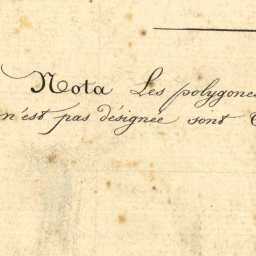 Nota Les polygones
n'est pas désignée sont